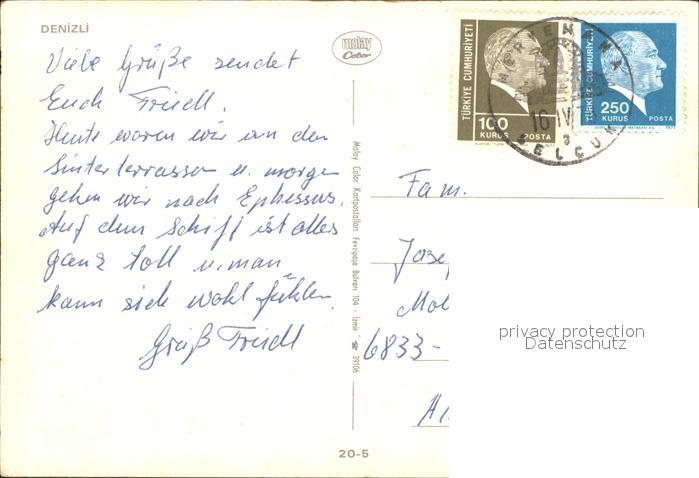 DENIZLİ
molay
Color
Viele Grüße sendet
Euch Friedl.
Heute waren wir an den
Sinterterrassen u. morgen
gehen wir nach Ephessus.
Auf dem Schiff ist alles
ganz toll u. man
kann sich wohl fühlen
Gruß Friedl
TÜRKİYE CUMHURİYETİ
100
KURUS POSTA
TÜRKİYE CUMHURİYETİ
250
KURUS POSTA
MERYEMANA
16 IV
SELÇUK
Molay Color Kartpostalları Fevzipaşa Bulvarı 104 - İzmir ☎ 39106
Fam.
Josef
6833-
20-5
privacy protection
Datenschutz